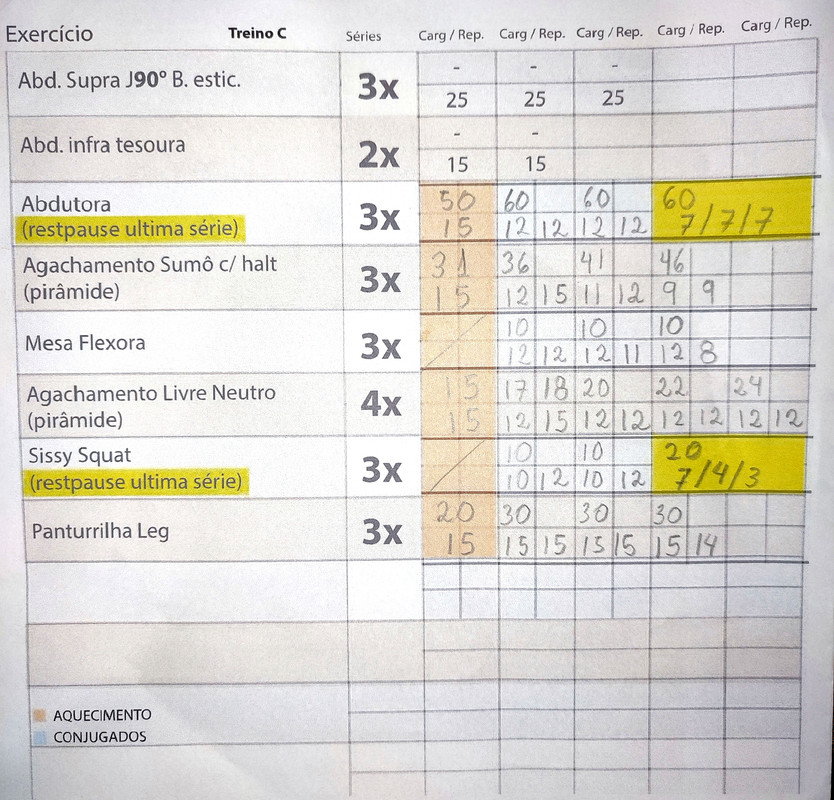 Exercício Treino C Séries Carg / Rep. Carg / Rep. Carg / Rep. Carg / Rep. Carg / Rep.
Abd. Supra J90º B. estic. 3x - - -
25 25 25
Abd. infra tesoura 2x - -
15 15
Abdutora 3x 50 60 60 60
(restpause ultima série) 15 12 12 12 12 7/7/7
Agachamento Sumô c/ halt 3x 31 36 41 46
(pirâmide) 15 12 15 11 12 9 9
Mesa Flexora 3x 10 10 10
12 12 12 11 12 8
Agachamento Livre Neutro 4x 15 17 18 20 22 24
(pirâmide) 15 12 15 12 12 12 12 12 12
Sissy Squat 3x 10 10 20
(restpause ultima série) 10 12 10 12 7/4/3
Panturrilha Leg 3x 20 30 30 30
15 15 15 15 15 15 14
AQUECIMENTO
CONJUGADOS